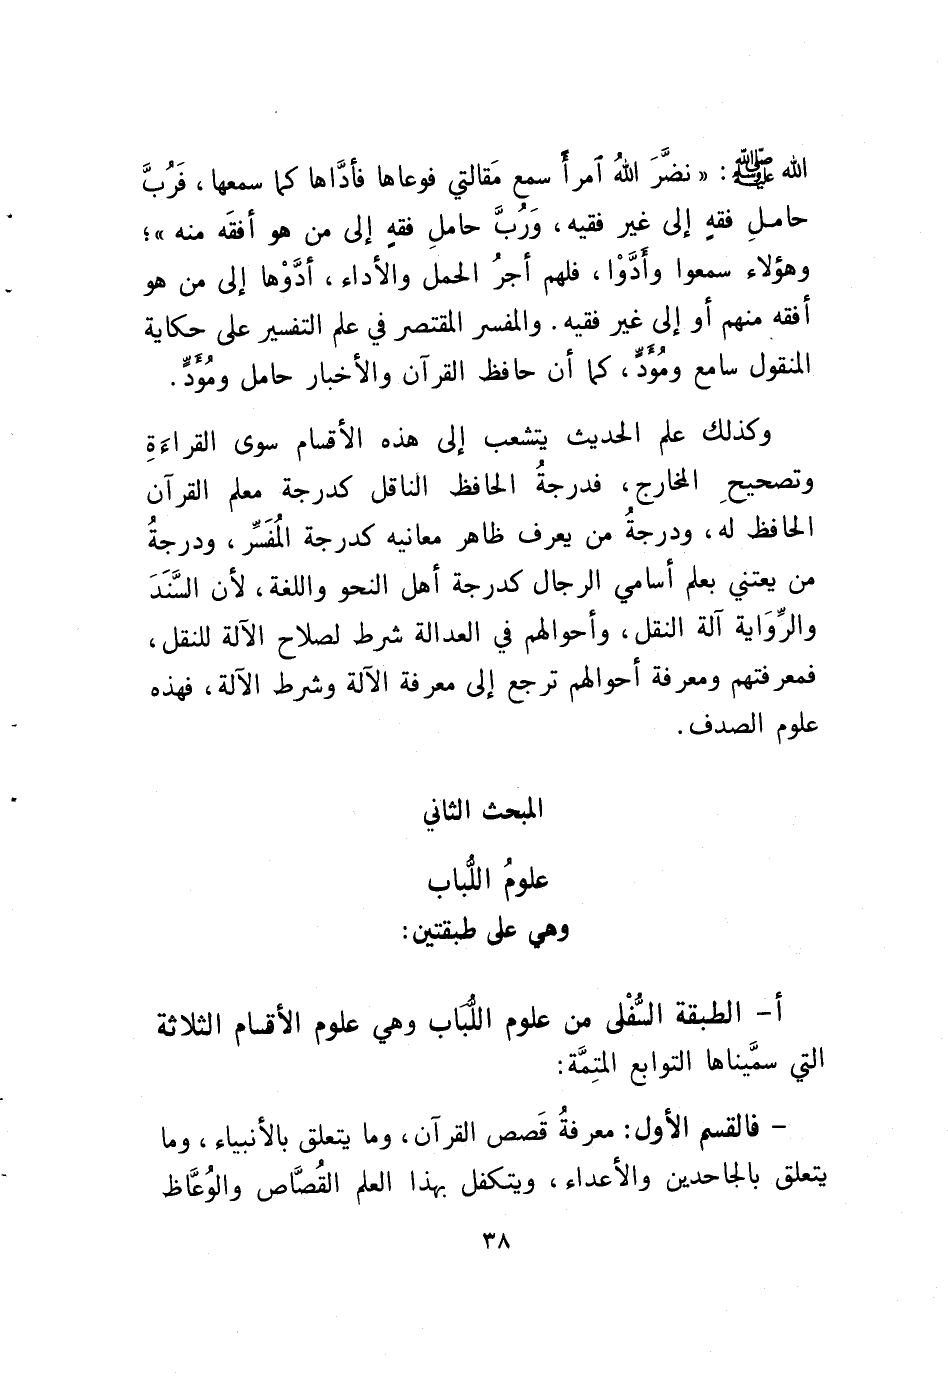 الله ﷺ: « نضَّرَ اللهُ ٱمرأً سمع مَقالتي فوعاها فأدَّاها كما سمعها، فَرُبَّ
حامـلِ فقهٍ إلى غير فقيه، وَرُبَّ حاملِ فقهٍ إلى من هو أفقَه منه »؛
وهؤلاء سمعوا وأَدَّوْا، فلهم أجرُ الحمل والأداء، أدَّوْها إلى من هو
أفقه منهم أو إلى غير فقيه. والمفسر المقتصر في علم التفسير على حكاية
المنقول سامع ومُؤَدٍّ، كما أن حافظ القرآن والأخبار حامل ومُؤَدٍّ.
وكذلك علم الحديث يتشعب إلى هذه الأقسام سوى القراءَةِ
وتصحيحِ المخارج، فدرجةُ الحافظ الناقل كدرجة معلم القرآن
الحافظ له، ودرجةُ من يعرف ظاهر معانيه كدرجة المُفَسِّر، ودرجةُ
من يعتني بعلم أسامي الرجال كدرجة أهل النحو واللغة، لأن السَّنَدَ
والرِّوَاية آلة النقل، وأحوالهم في العدالة شرط لصلاح الآلة للنقل،
فمعرفتهم ومعرفة أحوالهم ترجع إلى معرفة الآلة وشرط الآلة، فهذه
علوم الصدف.
المبحث الثاني
علومُ اللُّباب
وهي على طبقتين:
أ- الطبقة السُّفْلى من علوم اللُّبَاب وهي علوم الأقسام الثلاثة
التي سمَّيناها التوابع المتِمَّة:
- فالقسم الأول: معرفةُ قَصص القرآن، وما يتعلق بالأنبياء، وما
يتعلق بالجاحدين والأعداء، ويتكفل بهذا العلم القُصَّاص والوُعَّاظ
٣٨